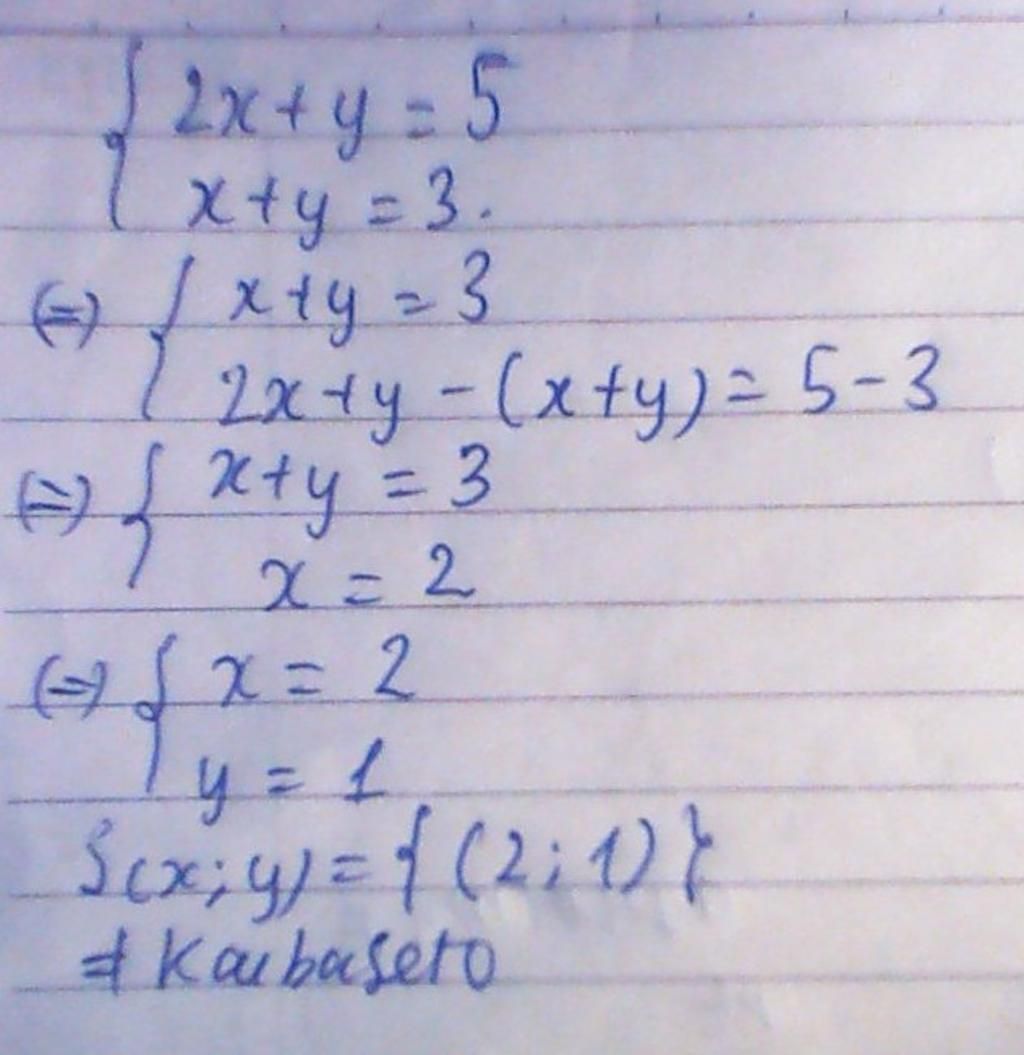 { 2x + y = 5
x + y = 3.
(=) { x + y = 3
2x + y - (x + y) = 5 - 3
(=) { x + y = 3
x = 2
(=) { x = 2
y = 1
S(x; y) = { (2; 1) }
# Kaibaseto